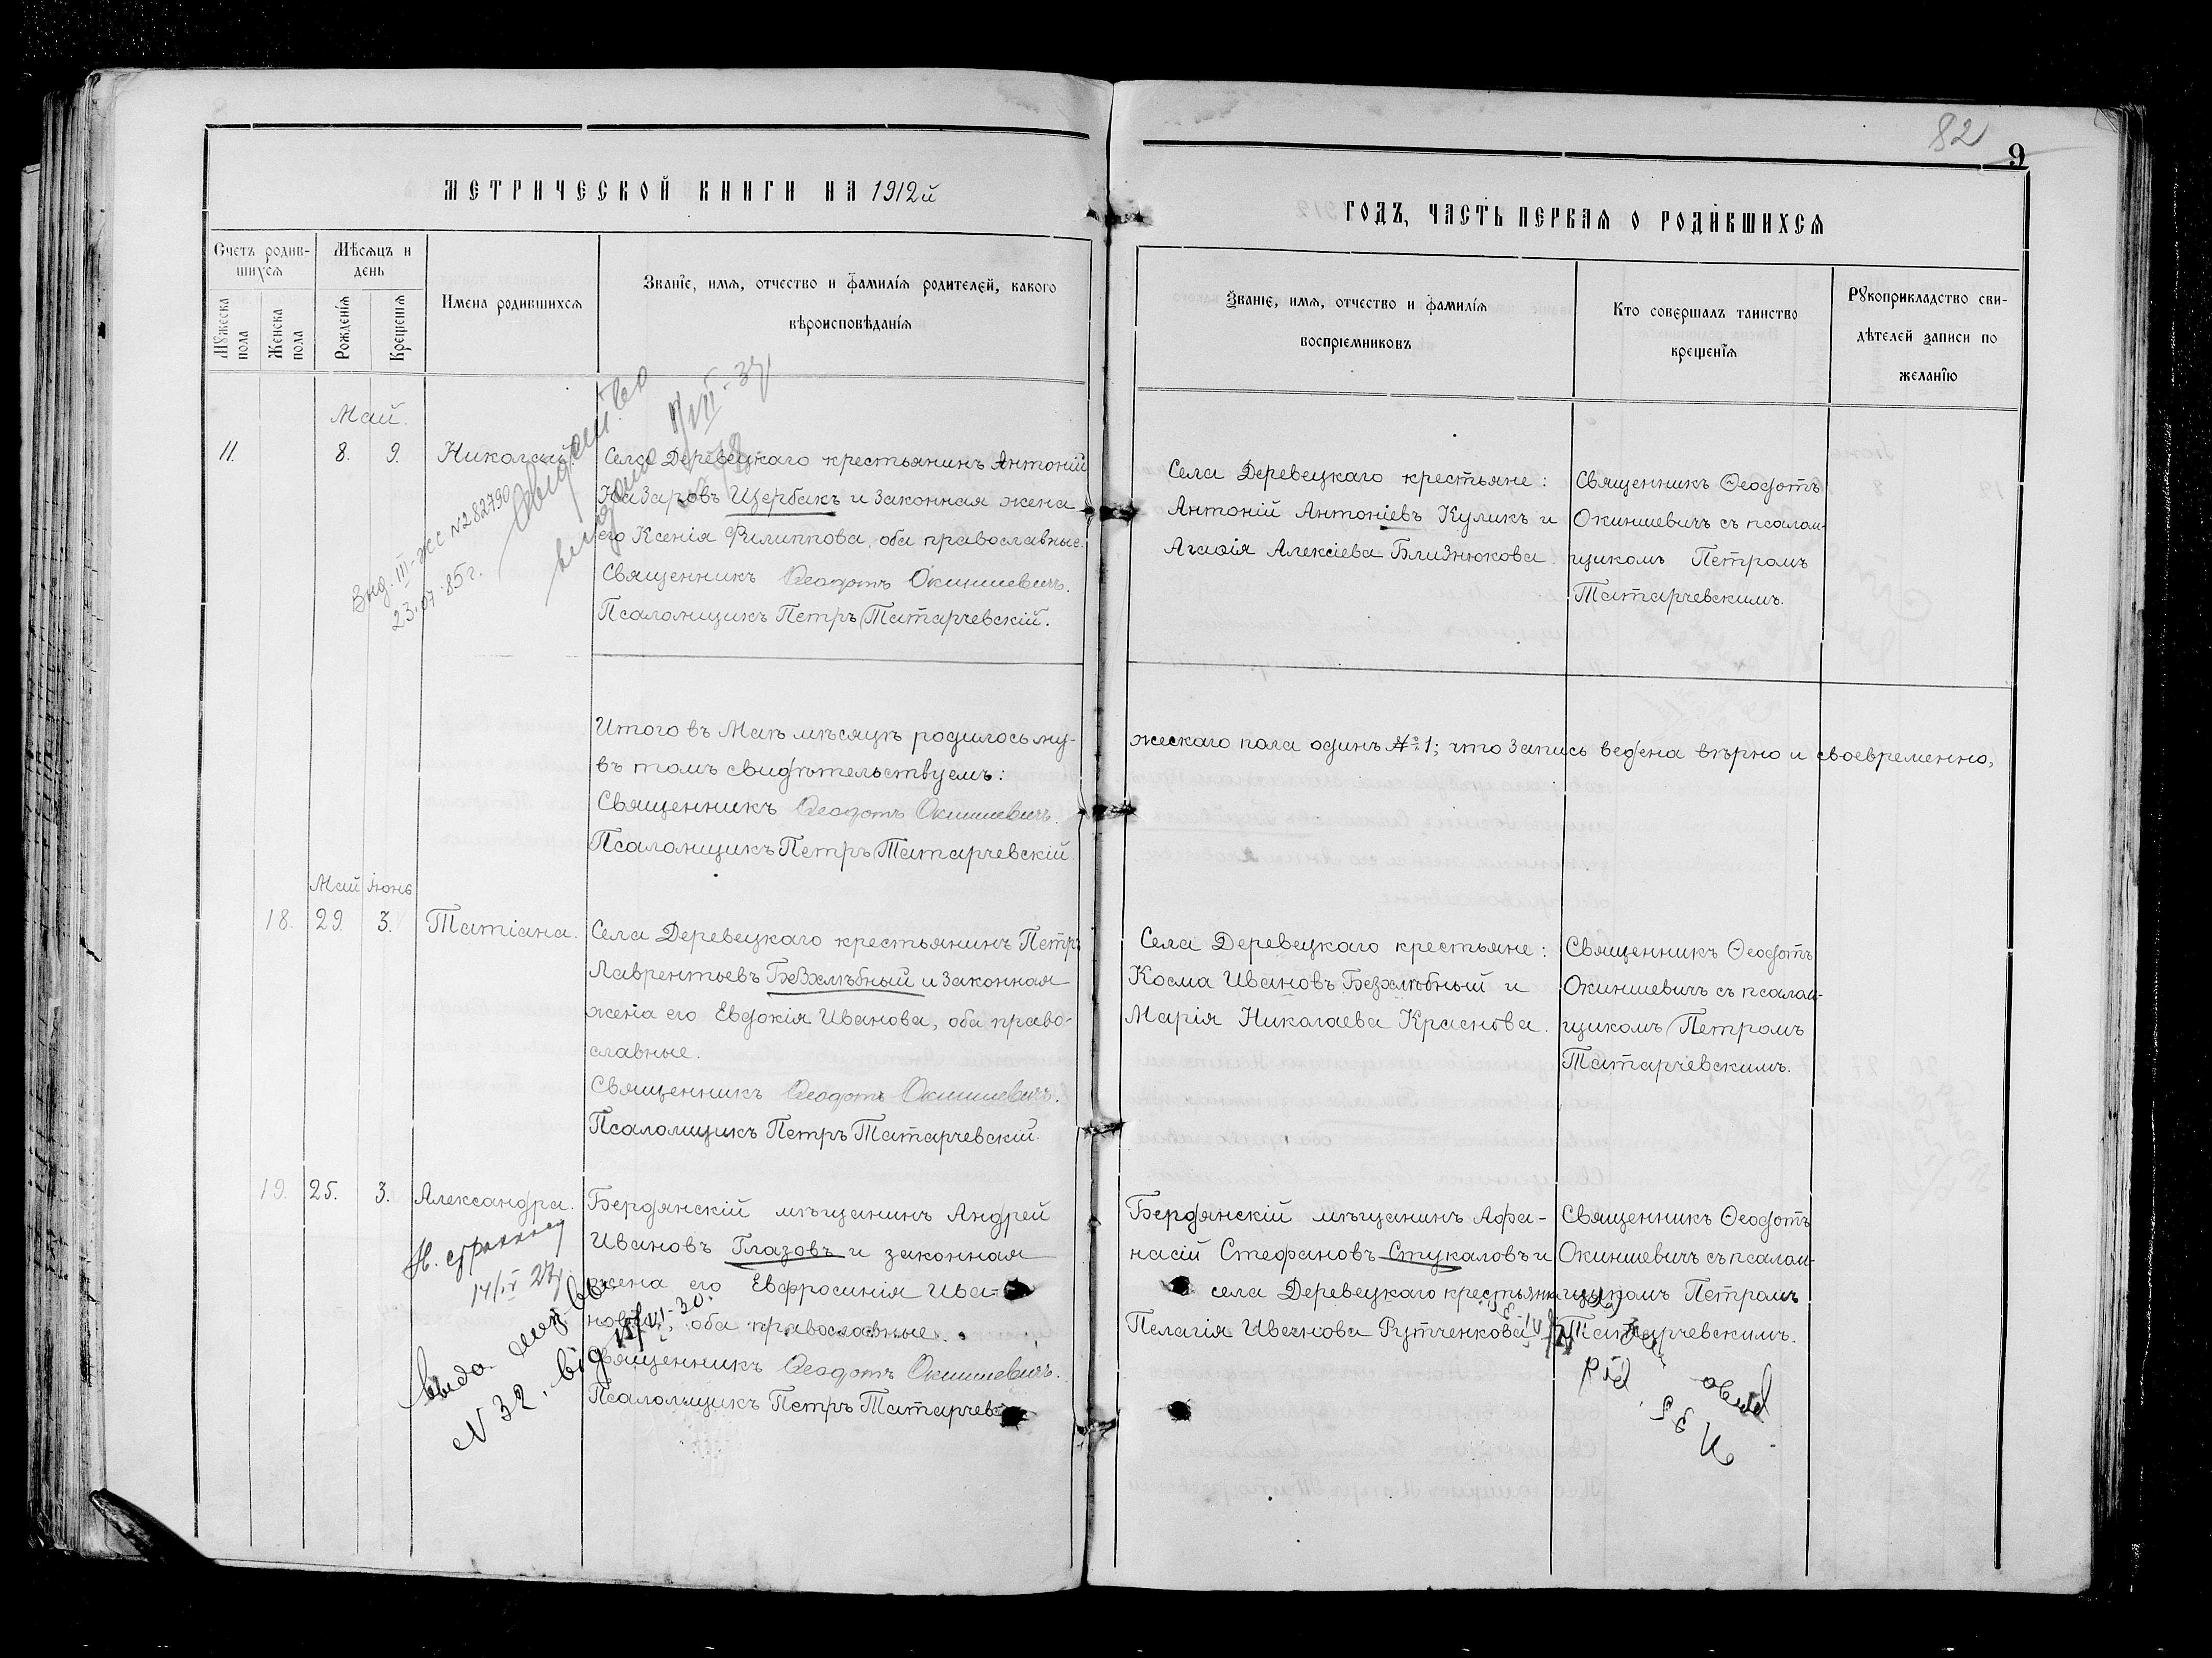 МЕТРИЧЕСКОЙ КНИГИ НА 1912й
Счетъ родив-
шихся
Мѣсяцъ и
день
Мужеска
пола
Женска
пола
Рожденія
Крещенія
Имена родившихся
Званіе, имя, отчество и фамилія родителей, какого
вѣроисповѣданія
Май.
11.
8.
9.
Николай.
Села Деревецкаго крестьянинъ Антоній
Назаровъ Щербакъ и законная жена
его Ксенія Филиппова, оба православные.
Священникъ Ѳеодотъ Окиншевичъ.
Псаломщикъ Петръ Татарчевскій.
Вид. III-ЖС №282790
23.07.85г.
Итого въ Маѣ мѣсяцѣ родилось му-
въ томъ свидѣтельствуемъ:
Священникъ Ѳеодотъ Окиншевичъ.
Псаломщикъ Петръ Татарчевскій
Май
Іюнь
18.
29.
3.
Татіана.
Села Деревецкаго крестьянинъ Петръ
Лаврентьевъ Безхлѣбный и законная
жена его Евдокія Иванова, оба право-
славные.
Священникъ Ѳеодотъ Окиншевичъ.
Псаломщикъ Петръ Татарчевскій.
19.
25.
3.
Александра.
Бердянскій мѣщанинъ Андрей
Ивановъ Глазовъ и законная
жена его Евфросинія Ива-
нова, оба православные.
Священникъ Ѳеодотъ Окиншевичъ.
Псаломщикъ Петръ Татарчев
14/IV 27
N 32, від 15/VI-30.
82
9
ГОДЪ, ЧАСТЬ ПЕРВАЯ О РОДИВШИХСЯ
Званіе, имя, отчество и фамилія
воспріемниковъ
Кто совершалъ таинство
крещенія
Рукоприкладство сви-
дѣтелей записи по
желанію
Села Деревецкаго крестьяне:
Антоній Антоніевъ Куликъ и
Агафія Алексіева Близнюкова.
Священникъ Ѳеодотъ
Окиншевичъ съ псалом-
щикомъ Петромъ
Татарчевскимъ.
жескаго пола одинъ №1; что запись ведена вѣрно и своевременно,
Села Деревецкаго крестьяне:
Косма Ивановъ Безхлѣбный и
Марія Николаева Краснова.
Священникъ Ѳеодотъ
Окиншевичъ съ псалом-
щикомъ Петромъ
Татарчевскимъ.
Бердянскій мѣщанинъ Афа-
насій Стефановъ Стукаловъ и
села Деревецкаго крестьянка
Пелагія Ивановна Рутченкова.
Священникъ Ѳеодотъ
Окиншевичъ съ псалом-
щикомъ Петромъ
Татарчевскимъ.